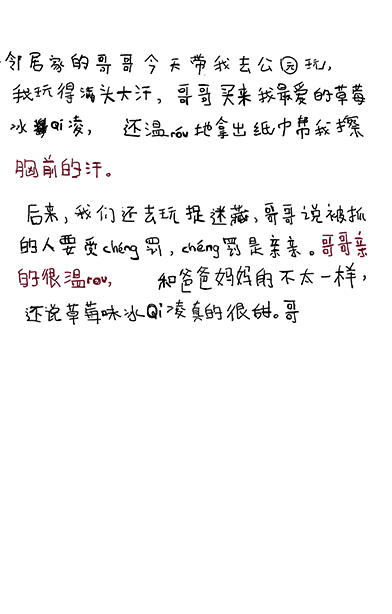 邻居家的哥哥今天带我去公园玩,
我玩得满头大汗,哥哥买来我最爱的草莓
冰Qi凌,还温róu地拿出纸巾帮我擦
胸前的汗。
后来,我们还去玩捉迷藏,哥哥说被抓
的人要受chéng罚,chéng罚是亲亲。哥哥亲
的很温rou,和爸爸妈妈的不太一样,
还说草莓味冰Qi凌真的很甜。哥